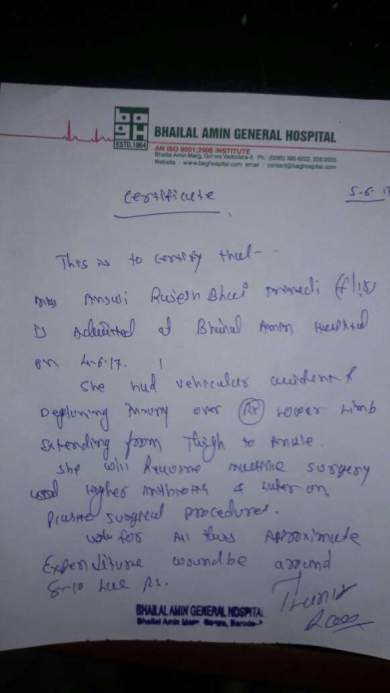 bagh
ESTD. 1964
BHAILAL AMIN GENERAL HOSPITAL
AN ISO 9001:2008 INSTITUTE
Bhailal Amin Marg, Gorwa Vadodara-3
Website : www.baghospital.com email : contact@baghospital.com
Certificate
5.6.17
This is to certify that
Rajesh Bhai (f/18)
is Admitted at Bhailal Amin Hospital
on 4.6.17.
She had vehicular accident &
Degluning Injury over (Rt) Lower Limb
Extending from Thigh to Ankle.
She will Require multiple surgery
Higher Antibiotics & Later on
Plastic surgical procedures.
for All this Approximate
Expenditure would be around
8-10 Lac Rs.
BHAILAL AMIN GENERAL HOSPITAL
Bhailal Amin Marg, Gorwa, Baroda-3